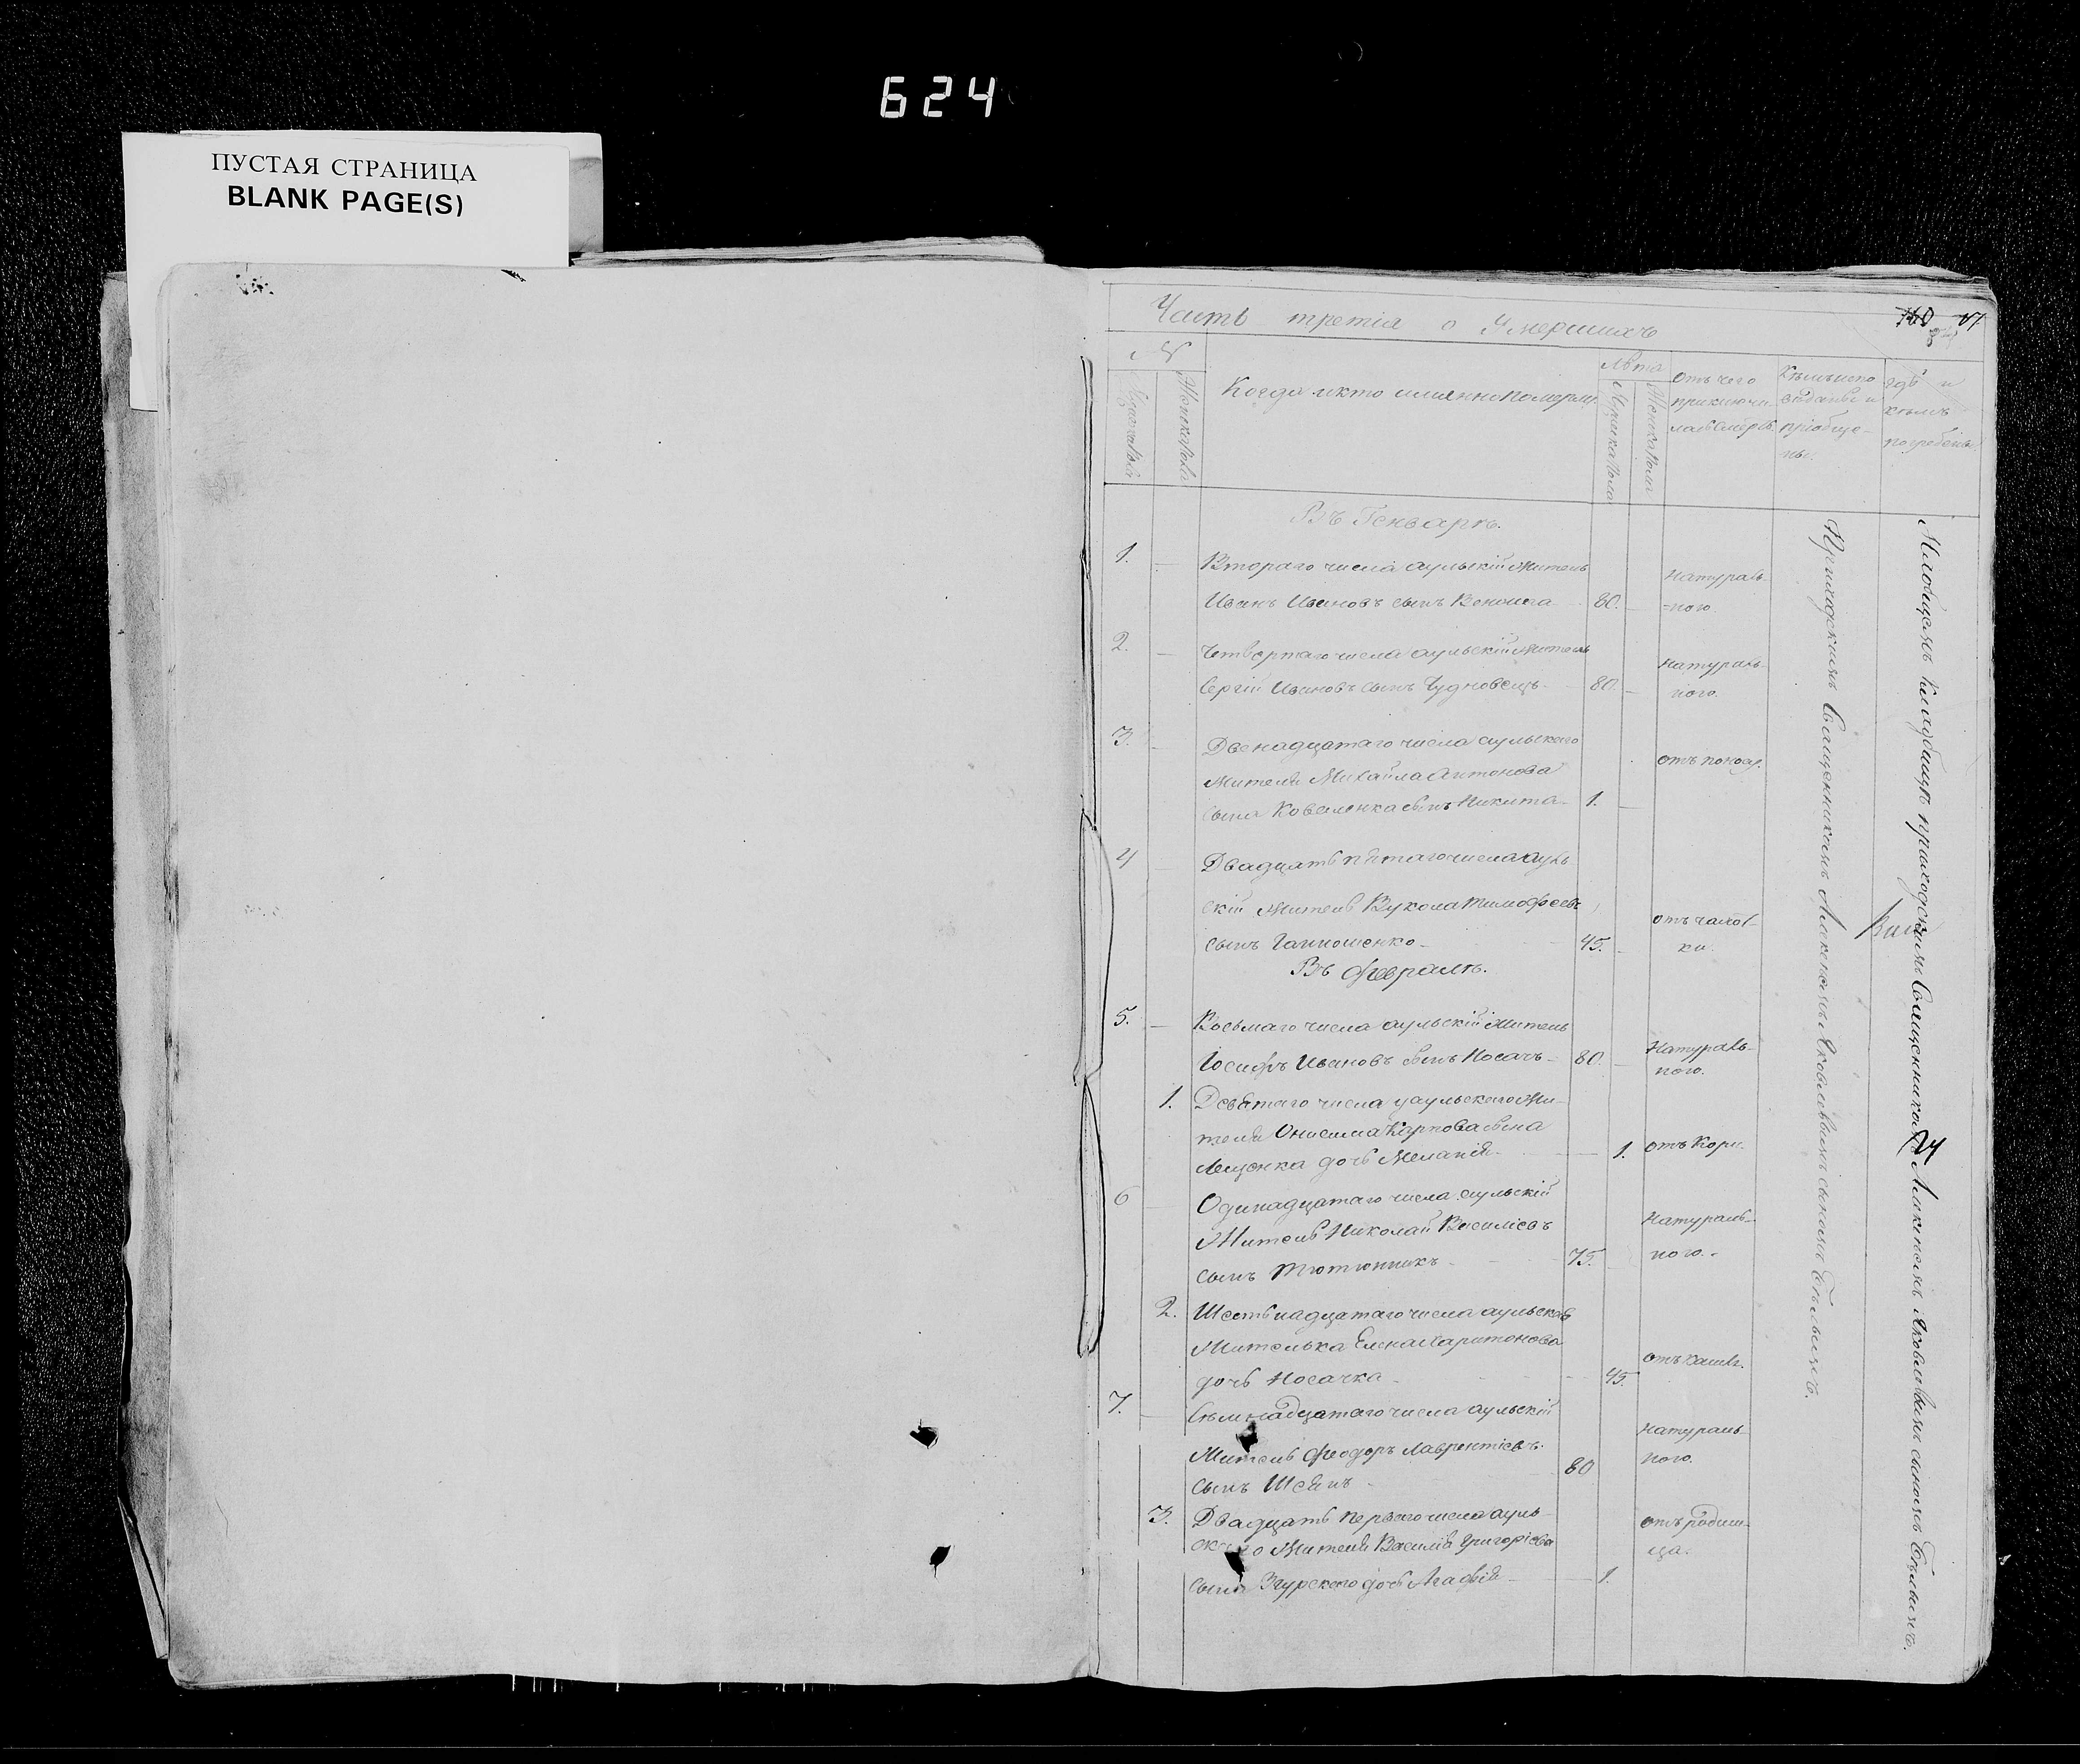 624
ПУСТАЯ СТРАНИЦА
BLANK PAGE(S)
Часть третія о Умершихъ
№
Мужеска
Женска пола
Когда и кто имянно померли
Лѣта
Мужеска пола
Женска пола
Отъ чего
приключи
лась смерть
Кѣмъ испо
вѣданы и
пріобще-
ны.
гдѣ и
кѣмъ
погребены
Въ Генварѣ.
1. Втораго числа аульскій житель
Иванъ Ивановъ сынъ 80. натураль-
-ного.
2. Четвертаго числа аульскій житель
Сергій Ивановъ сынъ Чудновецъ 80. натураль-
ного.
3. Двенадцатаго числа аульскаго
жителя Михайла Антонова
сына Коваленка сынъ Никита 1. отъ
4 Двадцать пятаго числа ауль
скій житель Вукола Тимофеевъ
сынъ 45. отъ чахот-
ки.
Въ Февралѣ.
5. Восьмаго числа аульскій житель
Іосифъ Ивановъ сынъ Носачъ 80. Натураль-
ного.
1. Девятаго числа аульскаго жи-
теля Онисима Карпова сына
Лещенка дочь Меланія 1. отъ Кори.
6 Одинадцатаго числа аульскій
Житель Николай Василіевъ
сынъ Тютюнникъ 75. Натураль-
ного.
2. Шестьнадцатаго числа аульская
Жителька Елена Харитонова
дочь Носачка 45. отъ кашля.
7. Семнадцатаго числа аульскій
Житель Феодоръ Лаврентіевъ
сынъ 80 натураль
ного.
3. Двадцать перваго числа ауль-
скаго жителя Василія Григоріева
сына Згурскаго дочь Агафія 1. отъ родим-
ца.
Приходскимъ Священникомъ Алексіемъ Яковлевымъ сыномъ
На общемъ кладбищѣ приходскимъ Священникомъ Алексіемъ Яковлевымъ сыномъ